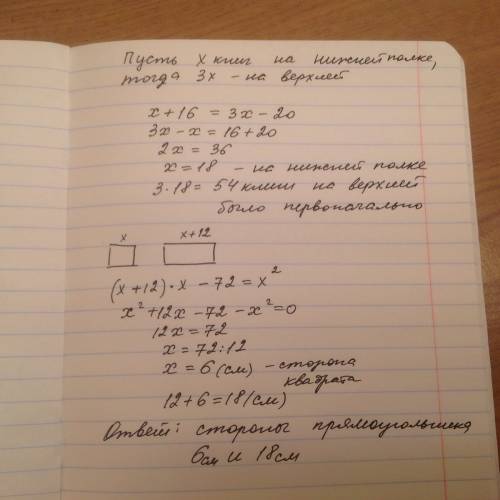 Пусть x книг на нижней полке,
тогда 3x – на верхней
x + 16 = 3x – 20
3x – x = 16 + 20
2x = 36
x = 18 – на нижней полке
3 · 18 = 54 книги на верхней
было первоначально
x x+12
(x + 12) · x – 72 = x²
x² + 12x – 72 – x² = 0
12x = 72
x = 72 : 12
x = 6 (см) – сторона
квадрата
12 + 6 = 18 (см)
Ответ: стороны прямоугольника
6см и 18см